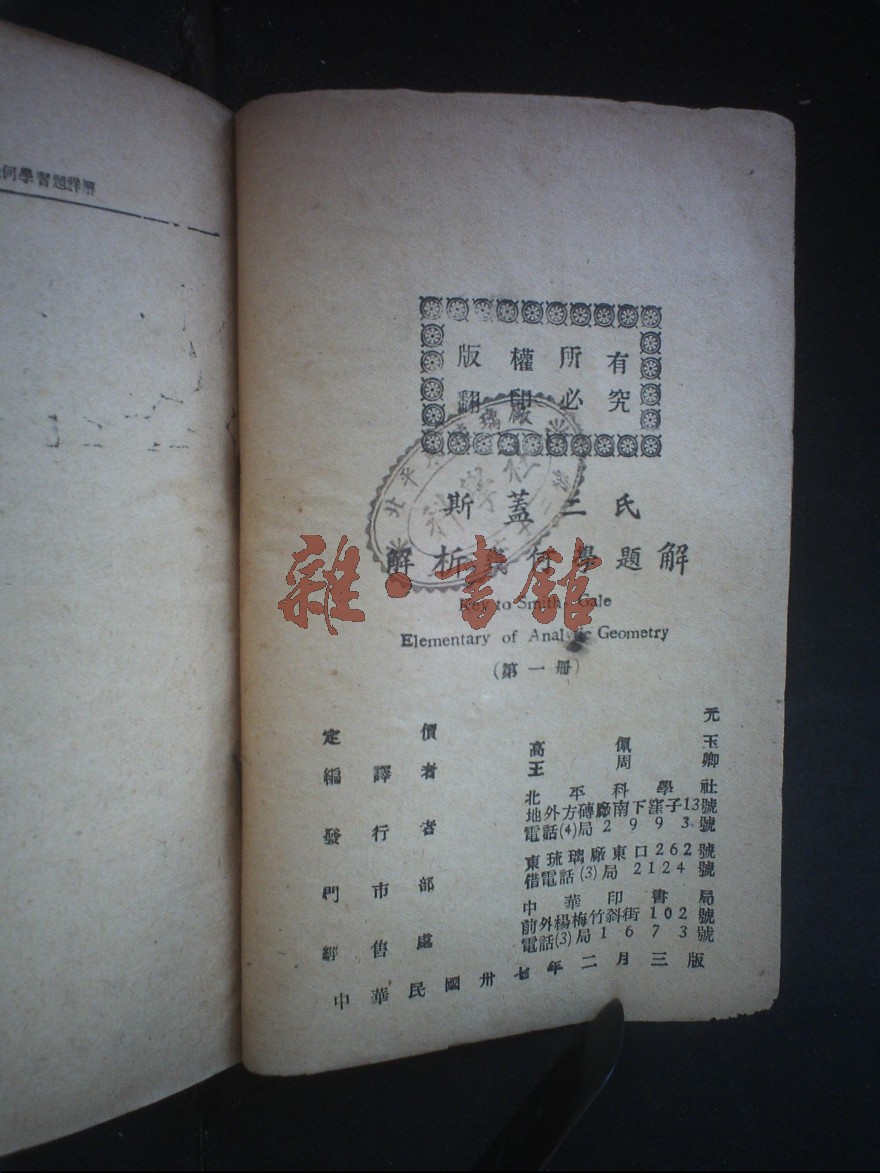 何學習題詳解
版權所有
翻印必究
斯蓋二氏
解析幾何學題解
Key to Smith Gale
Elementary of Analytic Geometry
(第一册)
定價 元
編譯者 高佩玉
王周卿
發行者 北平科學社
地外方磚廠南下窪子13號
電話(4)局2993號
門市部 東琉璃廠東口262號
借電話(3)局2124號
經售處 中華印書局
前外楊梅竹斜街102號
電話(3)局1673號
中華民國卅七年二月三版
北平
科學社
雜·書館